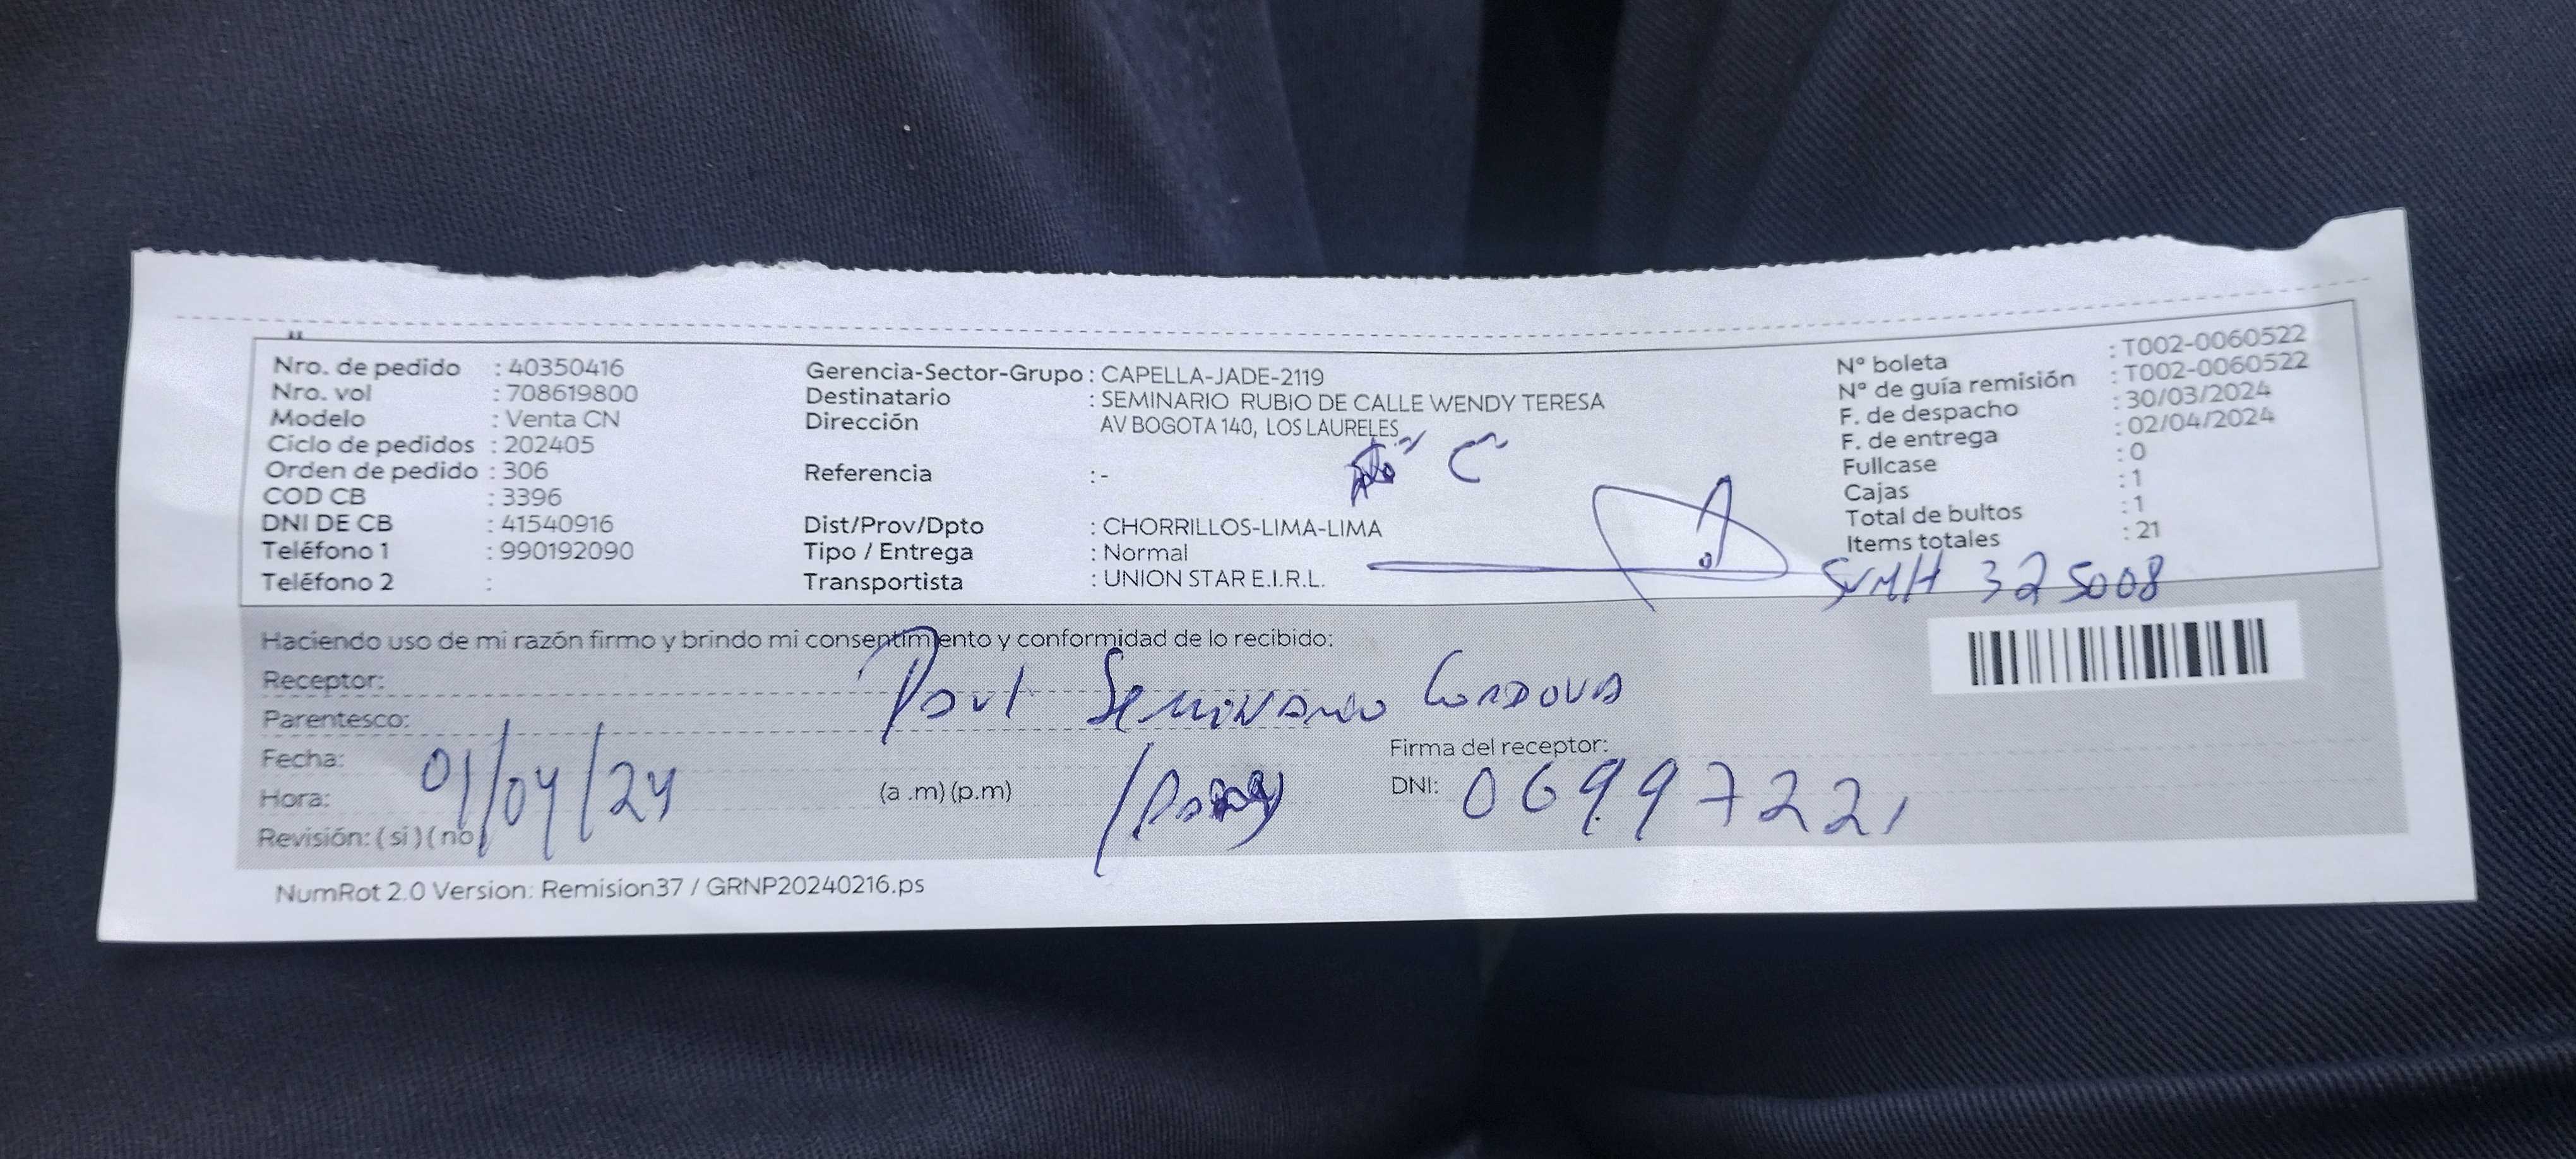 Nro. de pedido : 40350416
Nro. vol : 708619800
Modelo : Venta CN
Ciclo de pedidos : 202405
Orden de pedido : 306
COD CB : 3396
DNI DE CB : 41540916
Teléfono 1 : 990192090
Teléfono 2 :
Gerencia-Sector-Grupo : CAPELLA-JADE-2119
Destinatario : SEMINARIO RUBIO DE CALLE WENDY TERESA
Dirección AV BOGOTA 140, LOS LAURELES
"C"
Referencia : -
Dist/Prov/Dpto : CHORRILLOS-LIMA-LIMA
Tipo / Entrega : Normal
Transportista : UNION STAR E.I.R.L.
N° boleta : T002-0060522
N° de guía remisión : T002-0060522
F. de despacho : 30/03/2024
F. de entrega : 02/04/2024
Fullcase : 0
Cajas : 1
Total de bultos : 1
Items totales : 21
325008
Haciendo uso de mi razón firmo y brindo mi consentimiento y conformidad de lo recibido:
Receptor: Paul Seminario Cordova
Parentesco:
Fecha: 01/04/24
Hora: (a .m) (p.m)
Revisión: ( si ) ( no )
Firma del receptor:
DNI: 06997221
NumRot 2.0 Version: Remision37 / GRNP20240216.ps